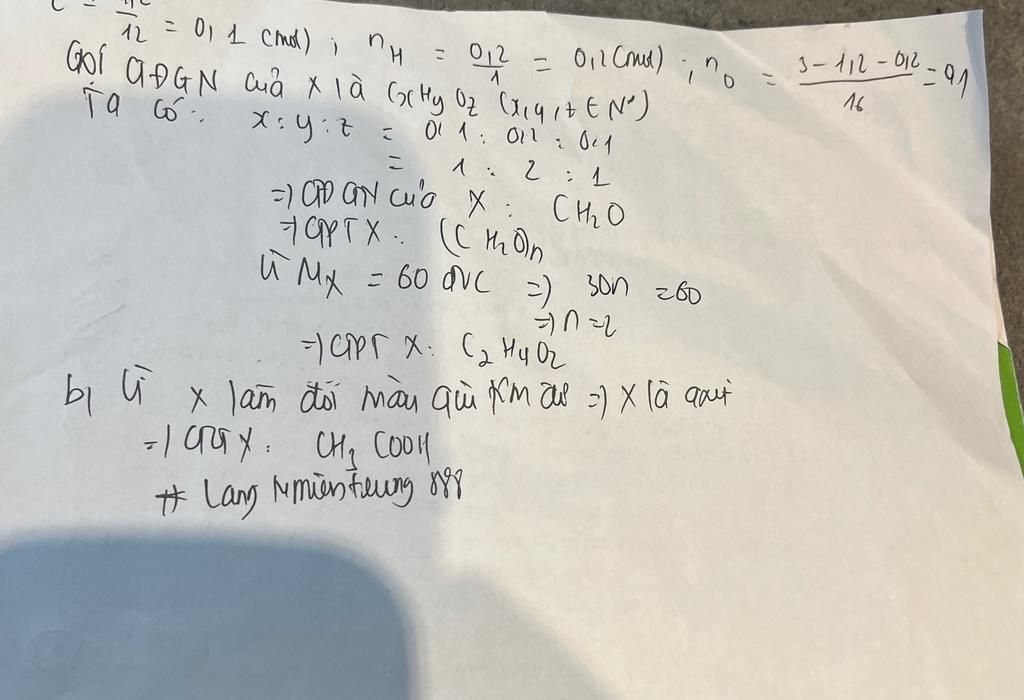 12 = 0,1 (mol) ; nH = 0,2/1 = 0,2 (mol) ; nO = 3-1,2-0,2/16 = 0,1
Gọi CTĐGN của X là CxHyOz (x,y,z ∈ N*)
Ta có: x:y:z = 0,1 : 0,2 : 0,1
= 1 : 2 : 1
=) CTĐGN của X : CH2O
=) CTPT X : (CH2O)n
Vì MX = 60 đvC =) 30n = 60
=) n = 2
=) CTPT X : C2H4O2
b) Vì X làm đổi màu quì tím đỏ =) X là axit
=) CTCT X : CH3COOH